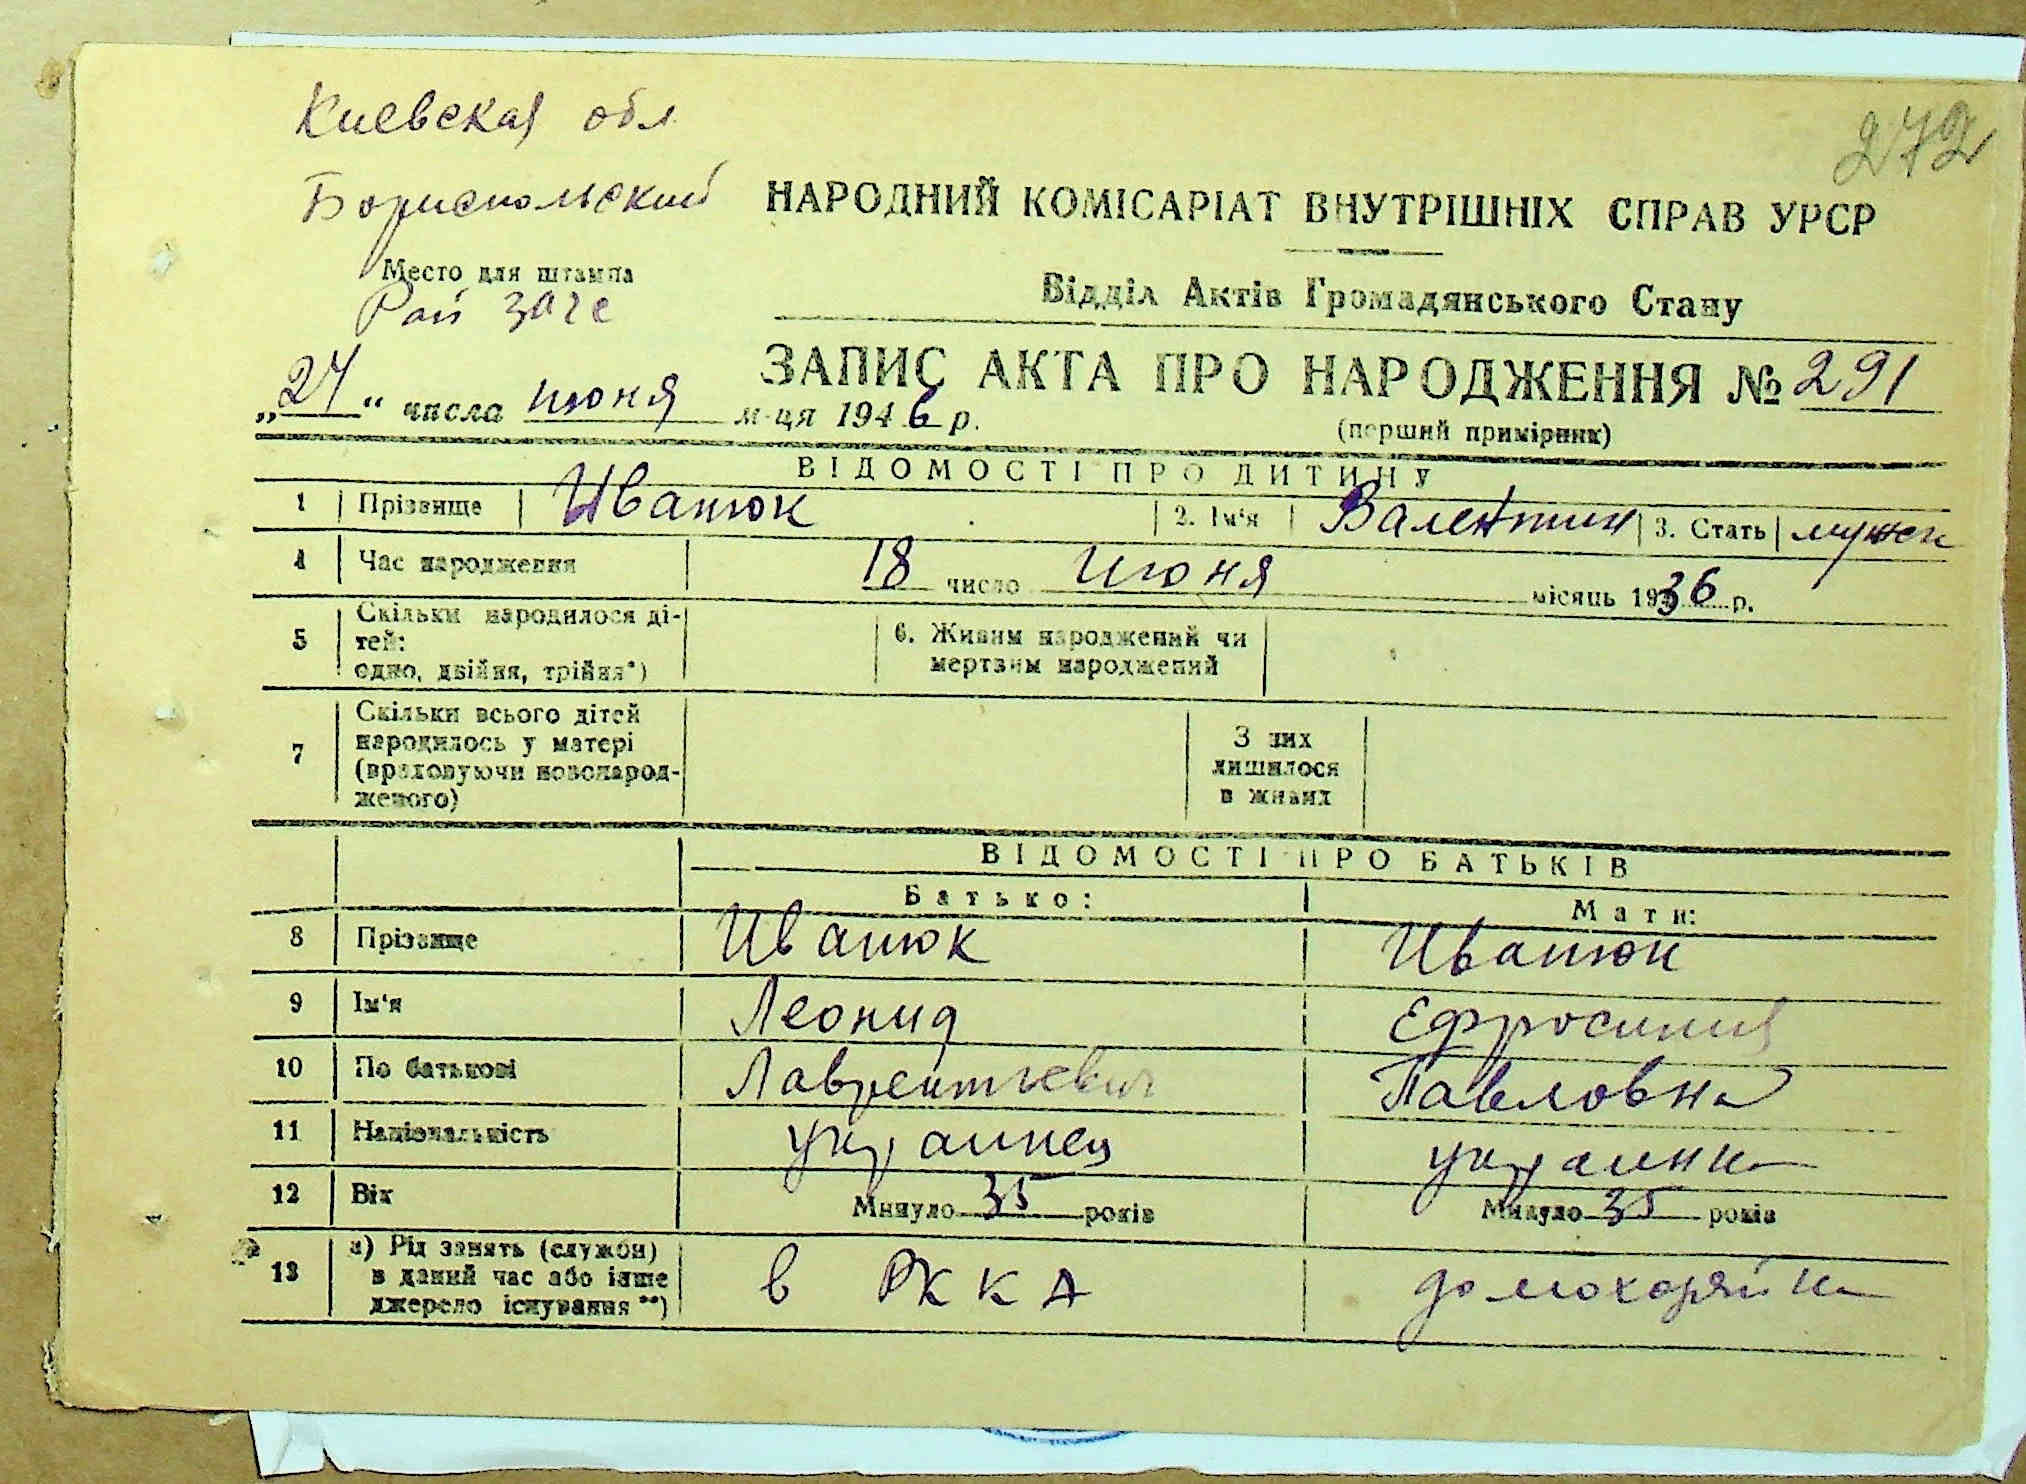 Киевская обл
272
Бориспольский
НАРОДНИЙ КОМІСАРІАТ ВНУТРІШНІХ СПРАВ УРСР
Место для штампа
Рай загс
Відділ Актів Громадянського Стану
ЗАПИС АКТА ПРО НАРОДЖЕННЯ № 291
„27“ числа июня м-ця 1946 р.
(перший примірник)
ВІДОМОСТІ ПРО ДИТИНУ
1 Прізвище Иванюк 2. Ім'я Валентин 3. Стать мужск
4 Час народження 18 число Июня місяць 1936 р.
5 Скільки народилося ді-
тей:
одно, двійня, трійня*)
6. Живим народжений чи
мертвим народжений
7 Скільки всього дітей
народилось у матері
(враховуючи новонарод-
женого)
З них
лишилося
в живих
ВІДОМОСТІ ПРО БАТЬКІВ
Батько: Мати:
8 Прізвище Иванюк Иванюк
9 Ім'я Леонид Ефросиния
10 По батькові Лаврентьевич Павловна
11 Національність украинец украинка
12 Вік Минуло 35 років Минуло 35 років
13 а) Рід занять (служби)
в даний час або інше
джерело існування**)
в РККА домохоряйка